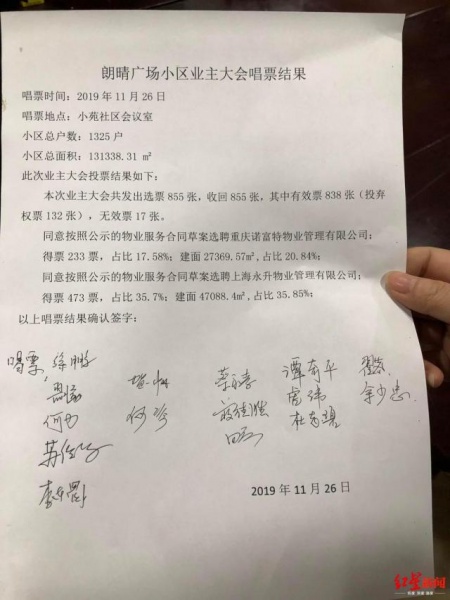 朗晴广场小区业主大会唱票结果
唱票时间：2019 年 11 月 26 日
唱票地点：小苑社区会议室
小区总户数：1325 户
小区总面积：131338.31 ㎡
此次业主大会投票结果如下：
本次业主大会共发出选票 855 张，收回 855 张，其中有效票 838 张（投弃
权票 132 张），无效票 17 张。
同意按照公示的物业服务合同草案选聘重庆诺富特物业管理有限公司：
得票 233 票，占比 17.58%；建面 27369.57㎡,占比 20.84%；
同意按照公示的物业服务合同草案选聘上海永升物业管理有限公司：
得票 473 票，占比 35.7%；建面 47088.4㎡,占比 35.85%；
以上唱票结果确认签字：
唱票，徐鹏 谭奇平
何力 何珍 杜志碧 余少忠
2019 年 11 月 26 日
红星新闻